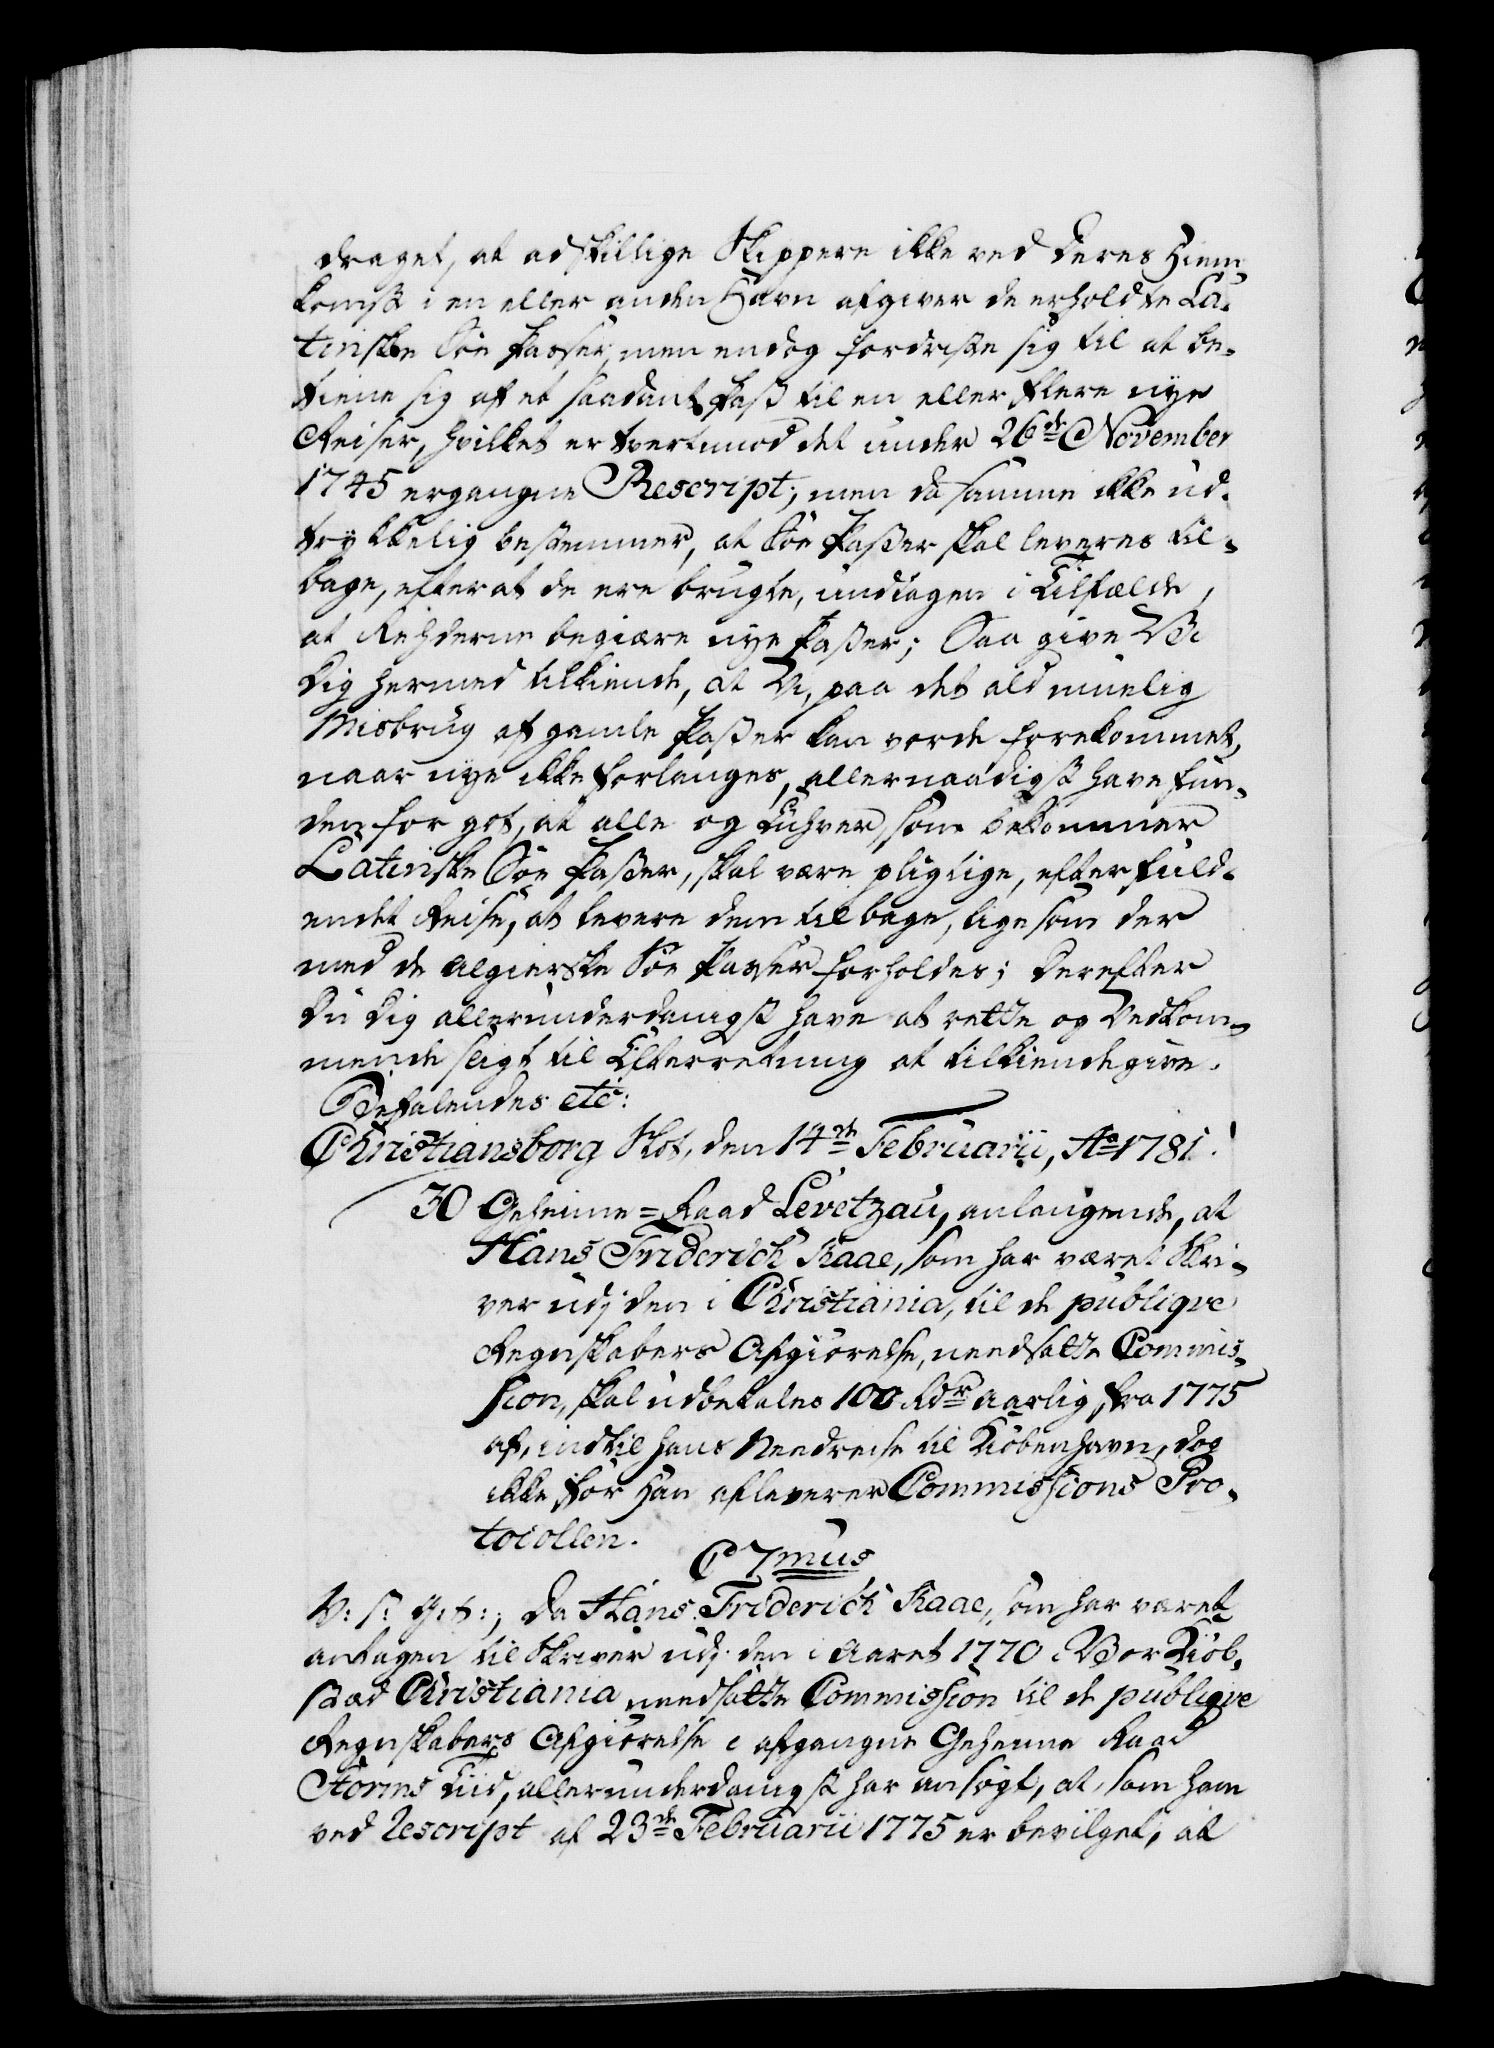 draget, at adskillige Skippere ikke ved deres Hiem-
komst i en eller anden Havn afgiver de erholdte La-
tinske Söe Passer, men endog fordriste sig til at be-
tiene sig af et saadant Pass til en eller flere nye
Reiser, hvilket er tvertimod det under 26de November
1745 ergangne Rescript; men da samme ikke ud-
trykkelig bestemmer, at Söe Passer skal leveres til-
bage, efter at de ere brugte, undtagen i Tilfælde,
at Rehderne begiære nye Passer; Saa give Vi
dig hermed tilkiende, at Vi, paa det ald muelig
Misbrug af gamle Passer kan vorde forekommet,
naar nye ikke forlanges, allernaadigst have fun-
den for got, at alle og Enhver, som bekommer
Latinske Söe Passer, skal være pligtige, efter fuld-
endt Reise, at levere dem tilbage, ligesom der
med de Algierske Söe Passer forholdes; Derefter
du dig allerunderdanigst have at rette og Vedkom-
mende sligt til Efterretning at tilkiendegive.
Befalendes etc:
Christiansborg Slot, den 14de Februarii, Ao 1781.
30 Geheime=Raad Levetzau, anlangende, at
Hans Friderich Kaae, som har været Skri-
ver udj den i Christiania, til de publiqve
Regnskabers Afgiörelse, needsatte Commis-
sion, skal udbetales 100 Rdr aarlig, fra 1775
af, indtil hans Needreise til Kiöbenhavn, dog
ikke för Han afleverer Commissions Pro-
tocollen.
C 7mus
V: S: G: T:; Da Hans Friderich Kaae, som har været
antagen til Skriver udj den i Aaret 1770 i Vor Kiöb-
stad Christiania needsatte Commission til de publiqve
Regnskabers Afgiörelse i afgangne Geheime Raad
Storms Tiid, allerunderdanigst har ansögt, at, som ham
ved Rescript af 23de Februarii 1775 er bevilget, at